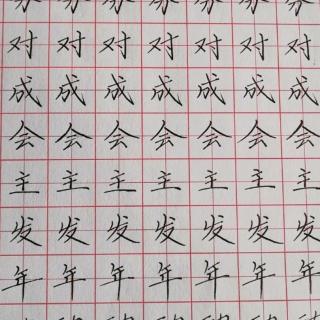 对 对 对 对 对 对 对
成 成 成 成 成 成 成
会 会 会 会 会 会 会
主 主 主 主 主 主 主
发 发 发 发 发 发 发
年 年 年 年 年 年 年